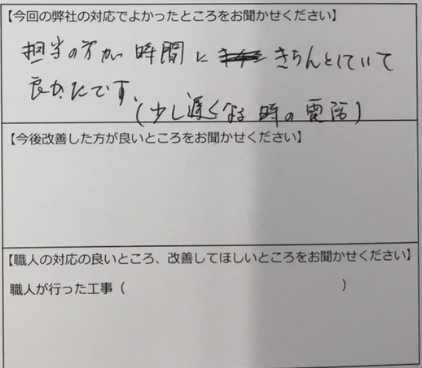 【今回の弊社の対応でよかったところをお聞かせください】
担当の方が時間にきちんとしていて
良かったです。
(少し遅くなる時の電話)
【今後改善した方が良いところをお聞かせください】
【職人の対応の良いところ、改善してほしいところをお聞かせください】
職人が行った工事（　　　　　　　　　　　　　　　）